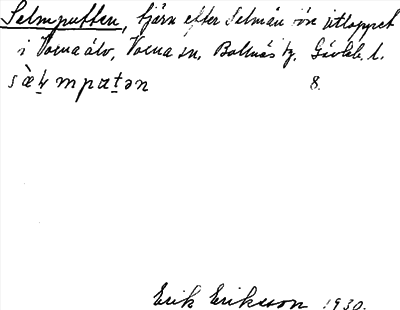 Selmputten, tjärn efter Selmån före utloppet
i Voxna älv, Voxna sn, Bollnäs tg. Gävleb. l.
sæ̀ḷmpatən 8.
Erik Eriksson 1930.